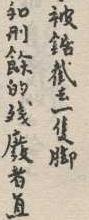 被鋸截去一隻腳
和刑餘的殘廢者直